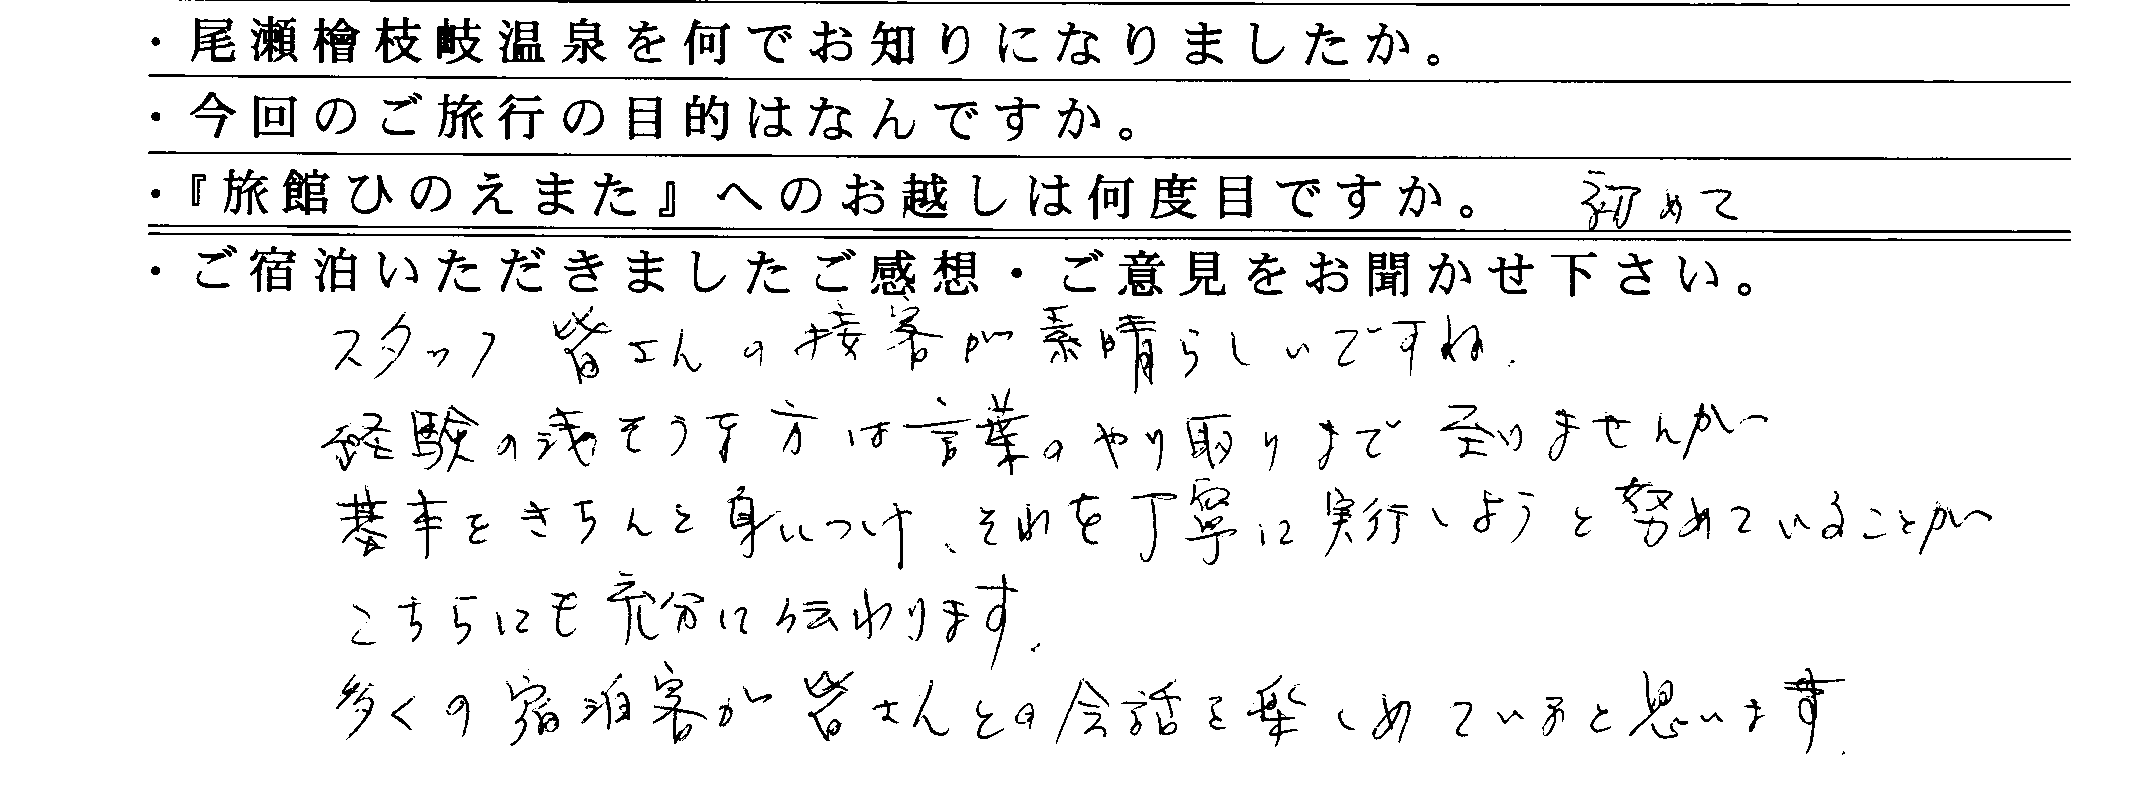 ・尾瀬檜枝岐温泉を何でお知りになりましたか。
・今回のご旅行の目的はなんですか。
・『旅館ひのえまた』へのお越しは何度目ですか。 初めて
・ご宿泊いただきましたご感想・ご意見をお聞かせ下さい。
スタッフ皆さんの接客が素晴らしいですね.
経験の浅そうな方は言葉のやり取りまで至りませんが
基本をきちんと身につけ、それを丁寧に実行しようと努めていることが
こちらにも充分に伝わります.
多くの宿泊客が皆さんとの会話を楽しめていると思います.